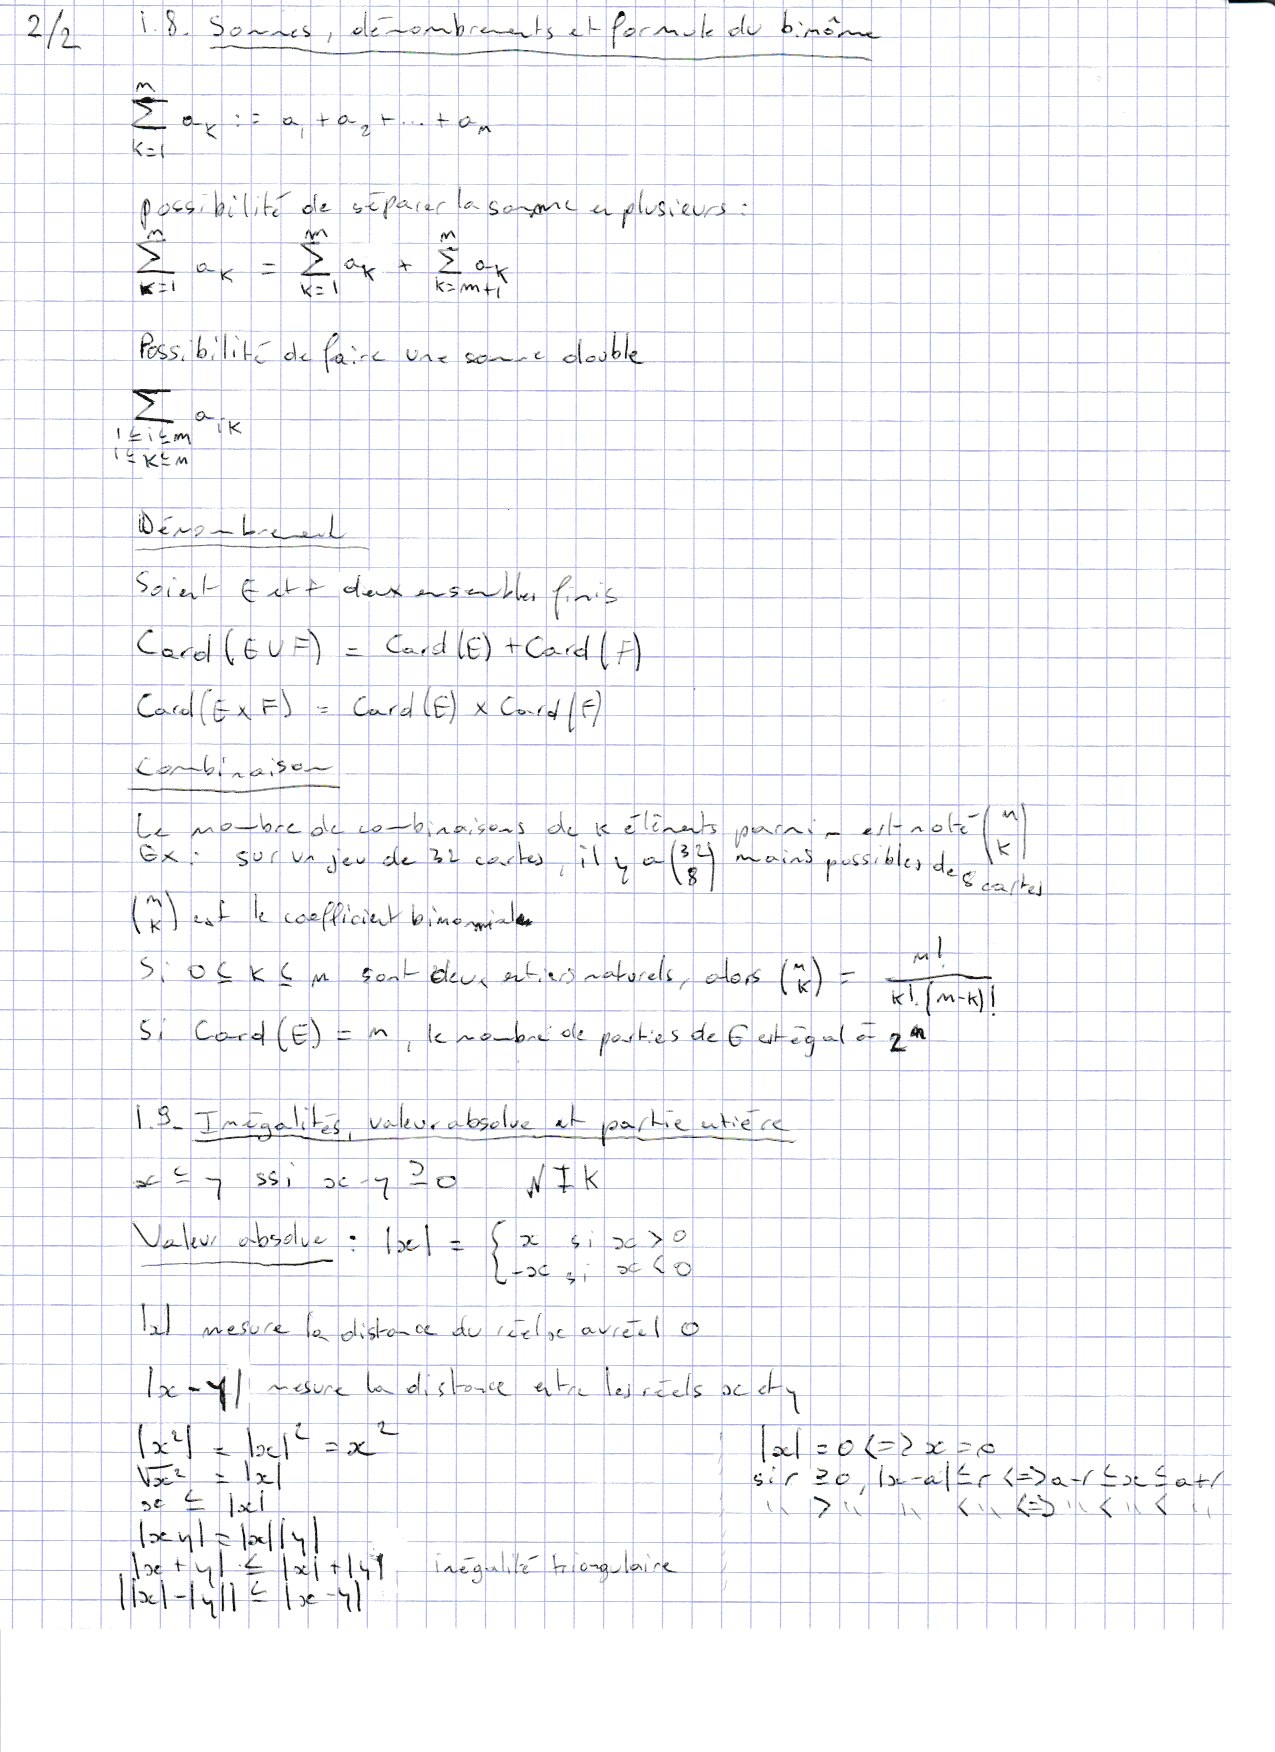 2/2
1.8. Sommes, dénombrements et formule du binôme
n
∑ aₖ := a₁ + a₂ + ... + aₙ
k=1
possibilité de séparer la somme en plusieurs :
n m n
∑ aₖ = ∑ aₖ + ∑ aₖ
k=1 k=1 k=m+1
Possibilité de faire une somme double
∑ aᵢₖ
1≤i≤m
1≤k≤n
Dénombrement
Soient E et F deux ensembles finis
Card(E∪F) = Card(E) + Card(F)
Card(E×F) = Card(E) × Card(F)
Combinaison
Le nombre de combinaisons de k éléments parmi n est noté (n k)
Ex : sur un jeu de 32 cartes, il y a (32 8) mains possibles de 8 cartes
(n k) est le coefficient binomial
Si 0 ≤ k ≤ n sont deux entiers naturels, alors (n k) = n! / k!.(n-k)!
Si Card(E) = n, le nombre de parties de E est égal à 2ⁿ
1.9. Inégalités, valeur absolue et partie entière
x ≤ y ssi x - y ≥ 0 NIK
Valeur absolue : |x| = { x si x > 0
{ -x si x < 0
|x| mesure la distance du réel x au réel 0
|x-y| mesure la distance entre les réels x et y
|x²| = |x|² = x²
√x² = |x|
x ≤ |x|
|xy| = |x||y|
|x+y| ≤ |x|+|y| inégalité triangulaire
||x|-|y|| ≤ |x-y|
|x| = 0 <=> x = 0
si r ≥ 0, |x-a| ≤ r <=> a-r ≤ x ≤ a+r
" > " " < " <=> " < " < "